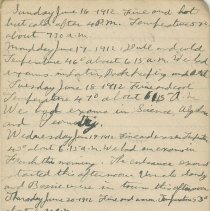 Sunday June 16 1912. Fine and hot
but cold after 4 P.M. Temperature 52°
about 7.30 A.M.
Monday June 17, 1912. Dull and cold
Temperature 46° about 6.15 A.M. We had
exams. in Latin,
Tuesday June 18 1912. Fine and cool
Temperature 47° about 6.15 A.M.
We had exams in Science, Algebra
and Geometry.
Wednesday June 19 1912. Fine and
45° about 6.15 A.M. We had an exam in
French this morning. The entrance exams
started this afternoon.
and Bossie were in town this afternoon
Thursday June 20 1912 Fine and warm. Temperature 53°